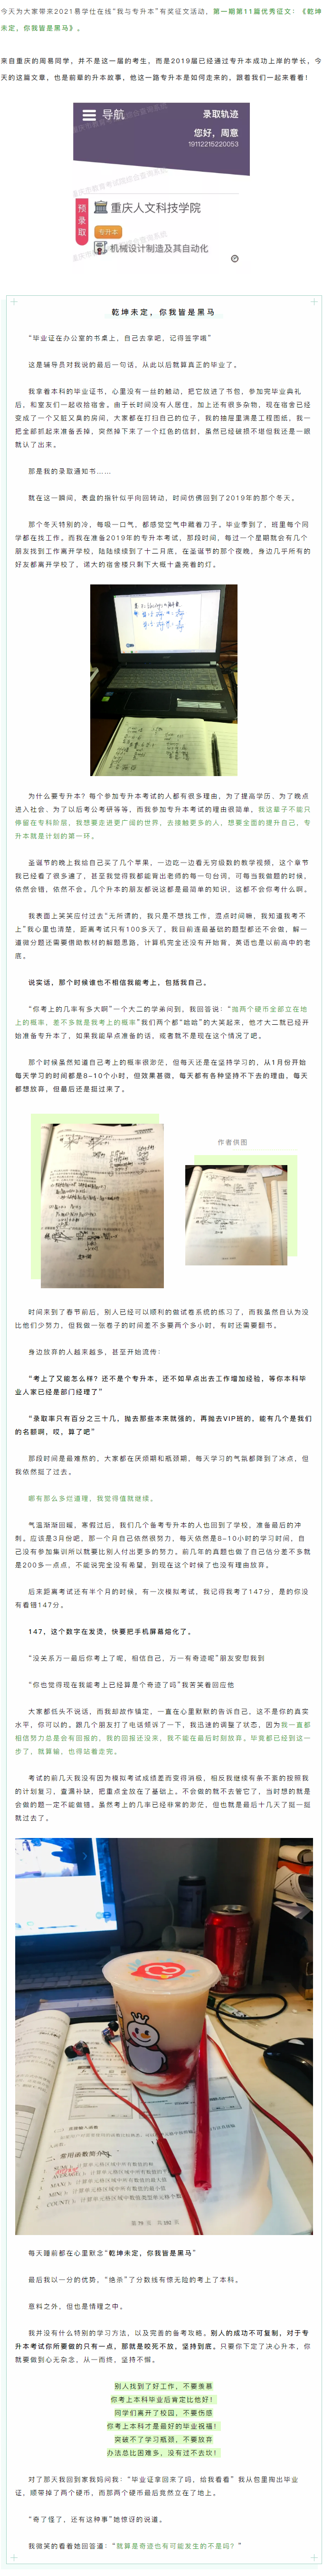 今天为大家带来2021易学仕在线“我与专升本”有奖征文活动，第一期第11篇优秀征文：《乾坤
未定，你我皆是黑马》。
来自重庆的周易同学，并不是这一届的考生，而是2019届已经通过专升本成功上岸的学长，今
天的这篇文章，也是前辈的升本故事，他这一路专升本是如何走来的，跟着我们一起来看看！
导航
录取轨迹
您好，周意
19112215220053
预录取
重庆人文科技学院
专升本
机械设计制造及其自动化
乾坤未定，你我皆是黑马
“毕业证在办公室的书桌上，自己去拿吧，记得签字哦”
这是辅导员对我说的最后一句话，从此以后就算真正的毕业了。
我拿着本科的毕业证书，心里没有一丝的触动，把它放进了书包，参加完毕业典礼
后，和室友们一起收拾宿舍，由于长时间没有人居住，加上还有很多杂物，现在宿舍已经
变成了一个又脏又臭的房间，大家都在打扫自己的位子，我的抽屉里满是工程图纸，我一
把全部抓起来准备丢掉，突然掉下来了一个红色的信封，虽然已经破损不堪但我还是一眼
就认了出来。
那是我的录取通知书……
就在这一瞬间，表盘的指针似乎向回转动，时间仿佛回到了2019年的那个冬天。
那个冬天特别的冷，每吸一口气，都感觉空气中藏着刀子。毕业季到了，班里每个同
学都在找工作。而我在准备2019年的专升本考试，那段时间，每过一个星期就会有几个
朋友找到工作离开学校，陆陆续续到了十二月底，在圣诞节的那个夜晚，身边几乎所有的
好友都离开学校了，诺大的宿舍楼只剩下大概十盏亮着的灯。
为什么要专升本？每个参加专升本考试的人都有很多理由，为了提高学历、为了晚点
进入社会、为了以后考公考研等等，而我参加专升本考试的理由很简单，我这辈子不能只
停留在专科阶层，我想要走进更广阔的世界，去接触更多的人，想要全面的提升自己，专
升本就是计划的第一环。
圣诞节的晚上我给自己买了几个苹果，一边吃一边看无穷级数的教学视频，这个章节
我已经看了很多遍了，甚至我觉得我都能背出老师的每一句台词，可每当我做题的时候，
依然会错，依然不会。几个升本的朋友都说这都是最简单的知识，这都不会你考什么啊。
我表面上笑笑应付过去“无所谓的，我只是不想找工作，混点时间嘛，我知道我考不
上”我心里也清楚，距离考试只有100多天了，我目前连最基础的题型都还不会做，解一
道微分题还需要借助教材的解题思路，计算机完全还没有开始背，英语也是以前高中的老
底。
说实话，那个时候谁也不相信我能考上，包括我自己。
“你考上的几率有多大啊”一个大二的学弟问到，我回答说：“抛两个硬币全部立在地
上的概率，差不多就是我考上的概率”我们两个都“哈哈”的大笑起来，他才大二就已经开
始准备专升本了，如果我能早点准备的话，或者就不是现在这个情况了吧。
那个时候虽然知道自己考上的概率很渺茫，但每天还是在坚持学习的，从1月份开始
每天学习的时间都是8~10个小时，但效果甚微，每天都有各种坚持不下去的理由，每天
都想放弃，但最后还是挺过来了。
作者供图
时间来到了春节前后，别人已经可以顺利的做试卷系统的练习了，而我虽然自认为没
比他们少努力，但我做一张卷子的时间差不多要两个多小时，有时还需要翻书。
身边放弃的人越来越多，甚至开始流传：
“考上了又能怎么样？还不是个专升本，还不如早点出去工作增加经验，等你本科毕
业人家已经是部门经理了”
“录取率只有百分之三十几，抛去那些本来就强的，再抛去VIP班的，能有几个是我们
的名额啊，哎，算了吧”
那段时间是最难熬的，大家都在厌烦期和瓶颈期，每天学习的气氛都降到了冰点，但
我依然挺了过去。
哪有那么多烂道理，我觉得值就继续。
气温渐渐回暖，寒假过后，我们几个备考专升本的人也回到了学校，准备最后的冲
刺。应该是3月份吧，那一个月自己依然很努力，每天依然是8~10小时的学习时间，自
己没有参加集训所以就要比别人付出更多的努力。前几年的真题也做了自己估分差不多就
是200多一点点，不能说完全没有希望，到现在这个时候了也没有理由放弃。
后来距离考试还有半个月的时候，有一次模拟考试，我记得我考了147分，是的你没
有看错147分。
147，这个数字在发烫，快要把手机屏幕熔化了。
“没关系万一最后你考上了呢，相信自己，万一有奇迹呢”朋友安慰我到
“你也觉得现在我能考上已经算是个奇迹了吗”我苦笑着回应他
大家都低头不说话，而我却故作镇定，一直在心里默默的告诉自己，这不是你的真实
水平，你可以的。跟几个朋友打了电话倾诉了一下，我迅速的调整了状态，因为我一直都
相信努力总是会有回报的，我的回报还没来，我不能在最后时刻放弃。毕竟都已经到这一
步了，就算输，也得站着走完。
考试的前几天我没有因为模拟考试成绩差而变得消极，相反我继续有条不紊的按照我
的计划复习，查漏补缺，把重点全放在了基础上。不会做的就不去管它了，当时想的就是
会做的题一定不能做错。虽然考上的几率已经非常的渺茫，但也就是最后十几天了挺一挺
就过去了。
二、常用函数简介
MAX：计算单元格区域中所有数值的
MIN：计算单元格区域中所有数值的
COUNT：计算单元格区域中所有数值
每天睡前都在心里默念“乾坤未定，你我皆是黑马”
最后我以一分的优势，“绝杀”了分数线有惊无险的考上了本科。
意料之外，但也是情理之中。
我并没有什么特别的学习方法，以及完善的备考攻略。别人的成功不可复制，对于专
升本考试你所要做的只有一点，那就是咬死不放，坚持到底。只要你下定了决心升本，你
就要做到心无杂念，从一而终，坚持不懈。
别人找到了好工作，不要羡慕
你考上本科毕业后肯定比他好！
同学们离开了校园，不要伤感
你考上本科才是最好的毕业祝福！
突破不了学习瓶颈，不要放弃
办法总比困难多，没有过不去坎！
对了那天我回到家我妈问我：“毕业证拿回来了吗，给我看看”我从包里掏出毕业
证，顺带掉了两个硬币，而那两个硬币最后竟然立在了地上。
“奇了怪了，还有这种事”她惊讶的说道。
我微笑的看着她回答道：“就算是奇迹也有可能发生的不是吗？”